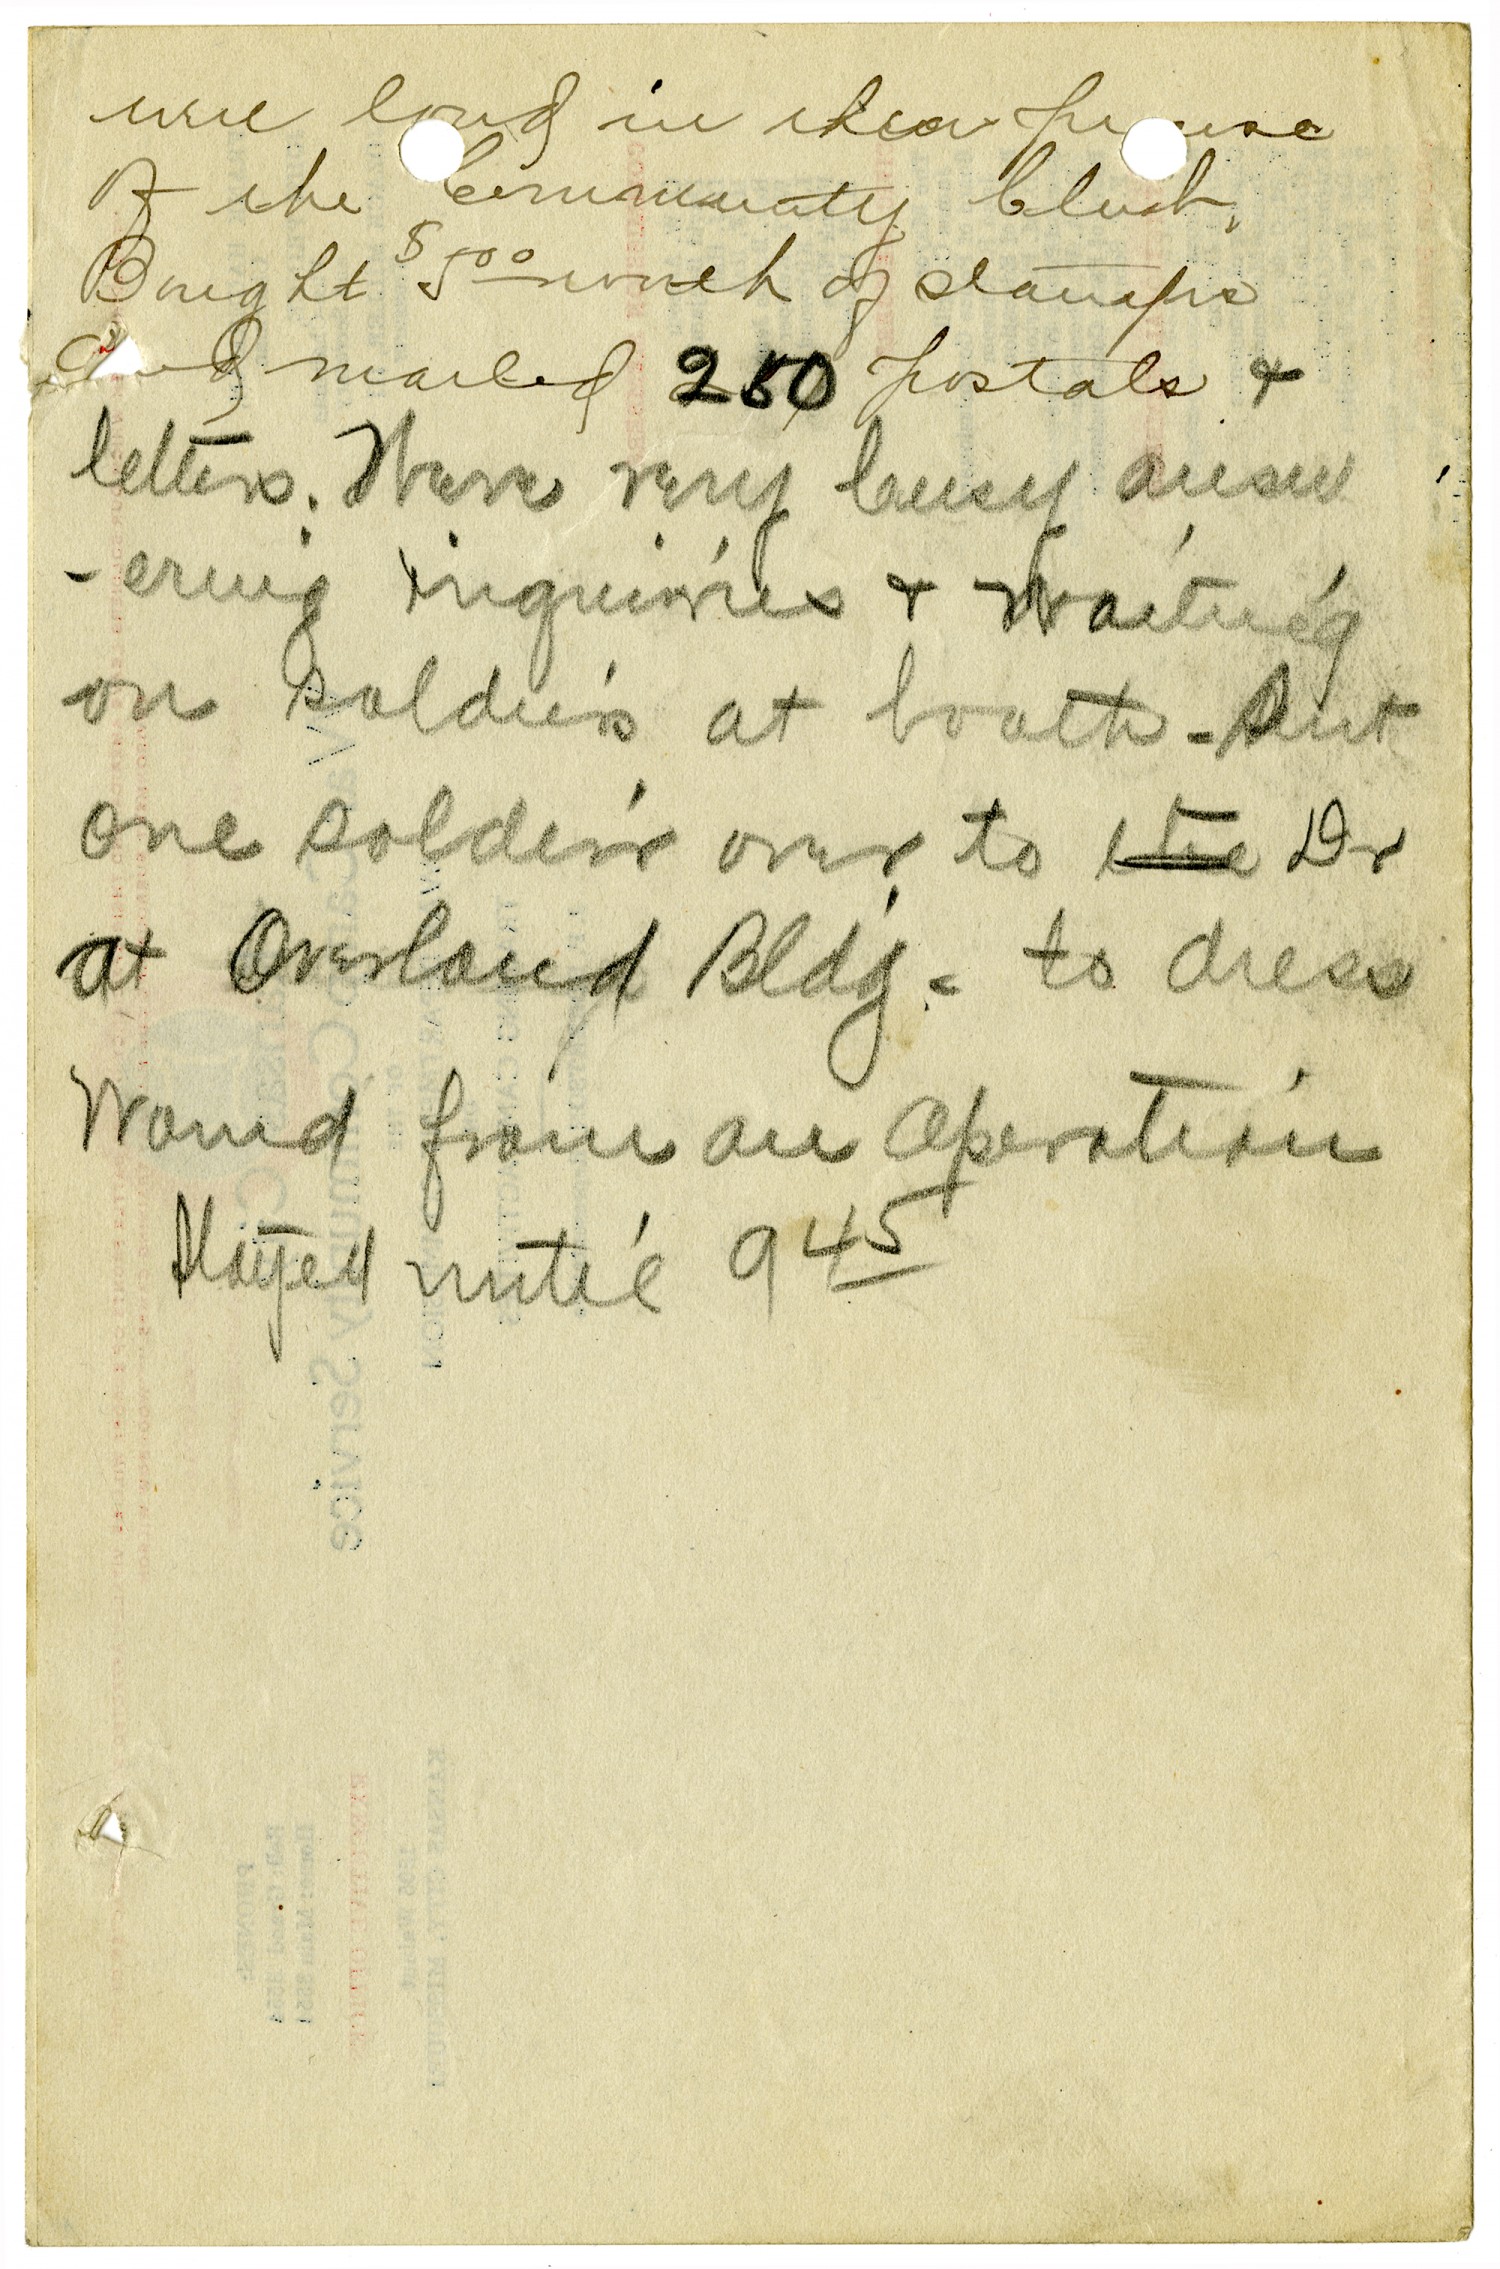 were loud in their praise
of the Community Club.
Bought $5.00 worth of stamps
and mailed 250 postals &
letters. Were very busy answ
-ering inquiries & Waiting
on soldiers at booth - Sent
one soldier over to the Dr
at Overland Bldg. - to dress
Wound from an Operation
Stayed until 9 45